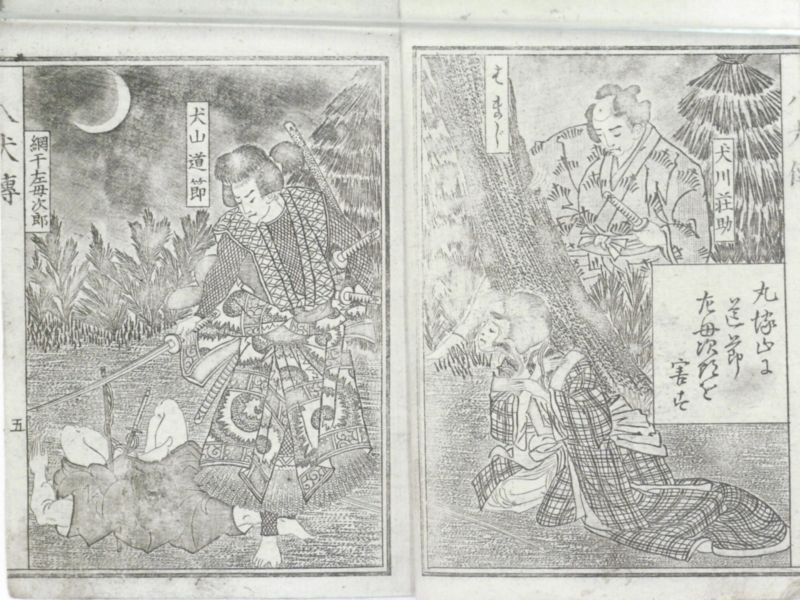 八犬傳
犬川荘助
はまぢ
丸塚山に
道節
左母次郎を
害す
犬山道節
網干左母次郎
八犬傳
五